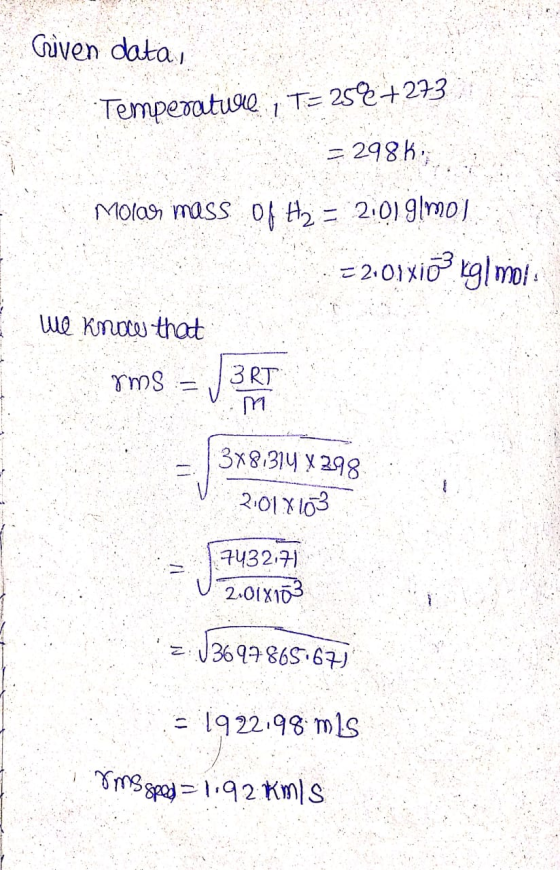 Given data,
Temperature, T= 25°c+273
= 298K.
Molar mass of H₂ = 2.01g/mol
= 2.01x10⁻³ kg/mol.
we know that
rms = √3RT/M
= √3x8.314 x 298/2.01x10⁻³
= √7432.71/2.01x10⁻³
= √3697865.671
= 1922.98 m/s
rms speed = 1.92 Km/s